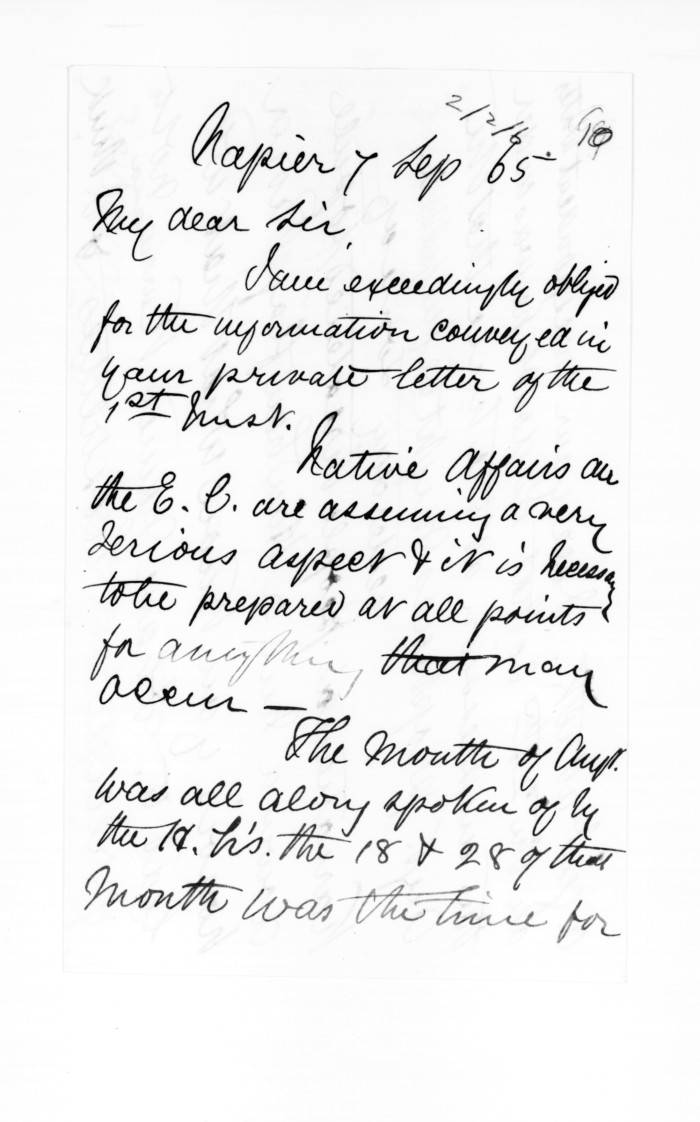 2/2/6
Napier 7 Sep 65.
My dear Sir,
I am exceedingly obliged
for the information conveyed in
your private letter of the
1st Inst.
Native Affairs on
the E. C. are assuming a very
serious aspect & it is necessary
to be prepared at all points
for anything that may
occur —
The Month of Augt.
was all along spoken of by
the H. H's. the 18 & 28 of that
Month was the time for